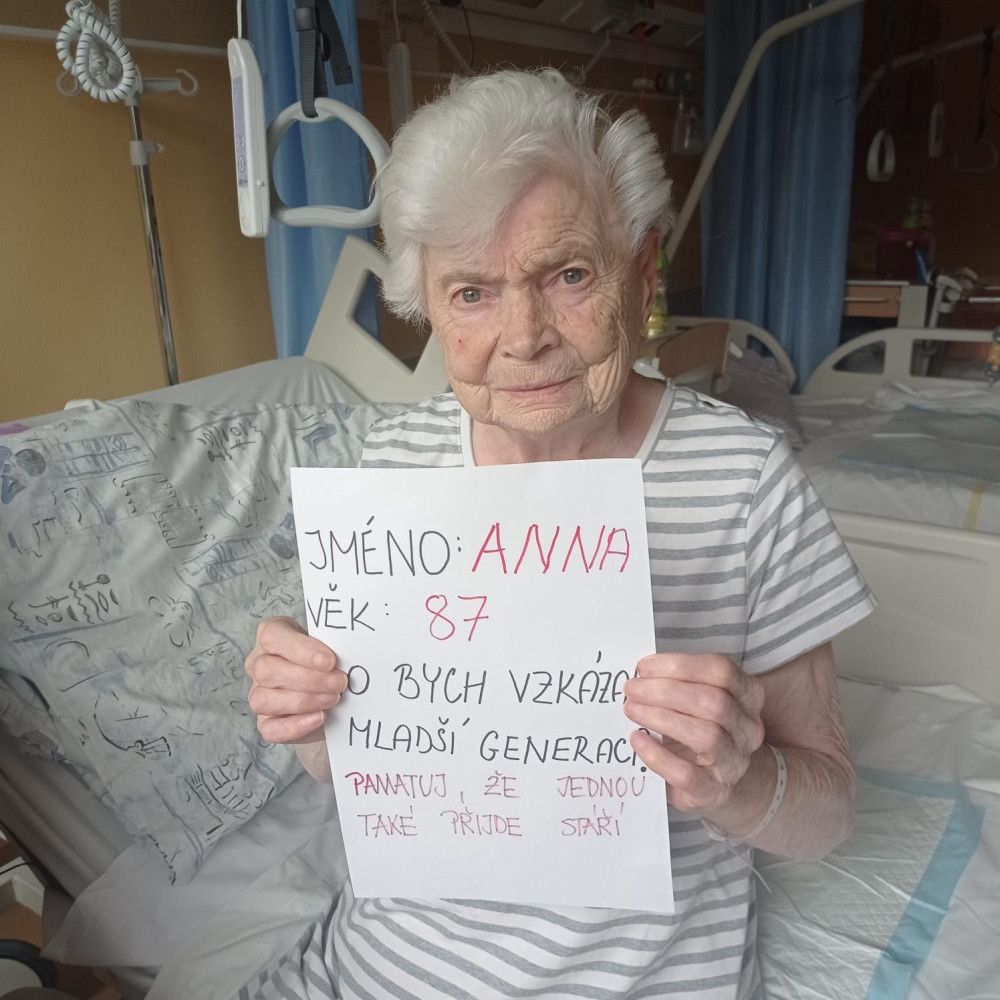 JMÉNO: ANNA
VĚK: 87
O BYCH VZKÁZA
MLADŠÍ GENERACI?
PAMATUJ, ŽE JEDNOU
TAKÉ PŘIJDE STÁŘÍ